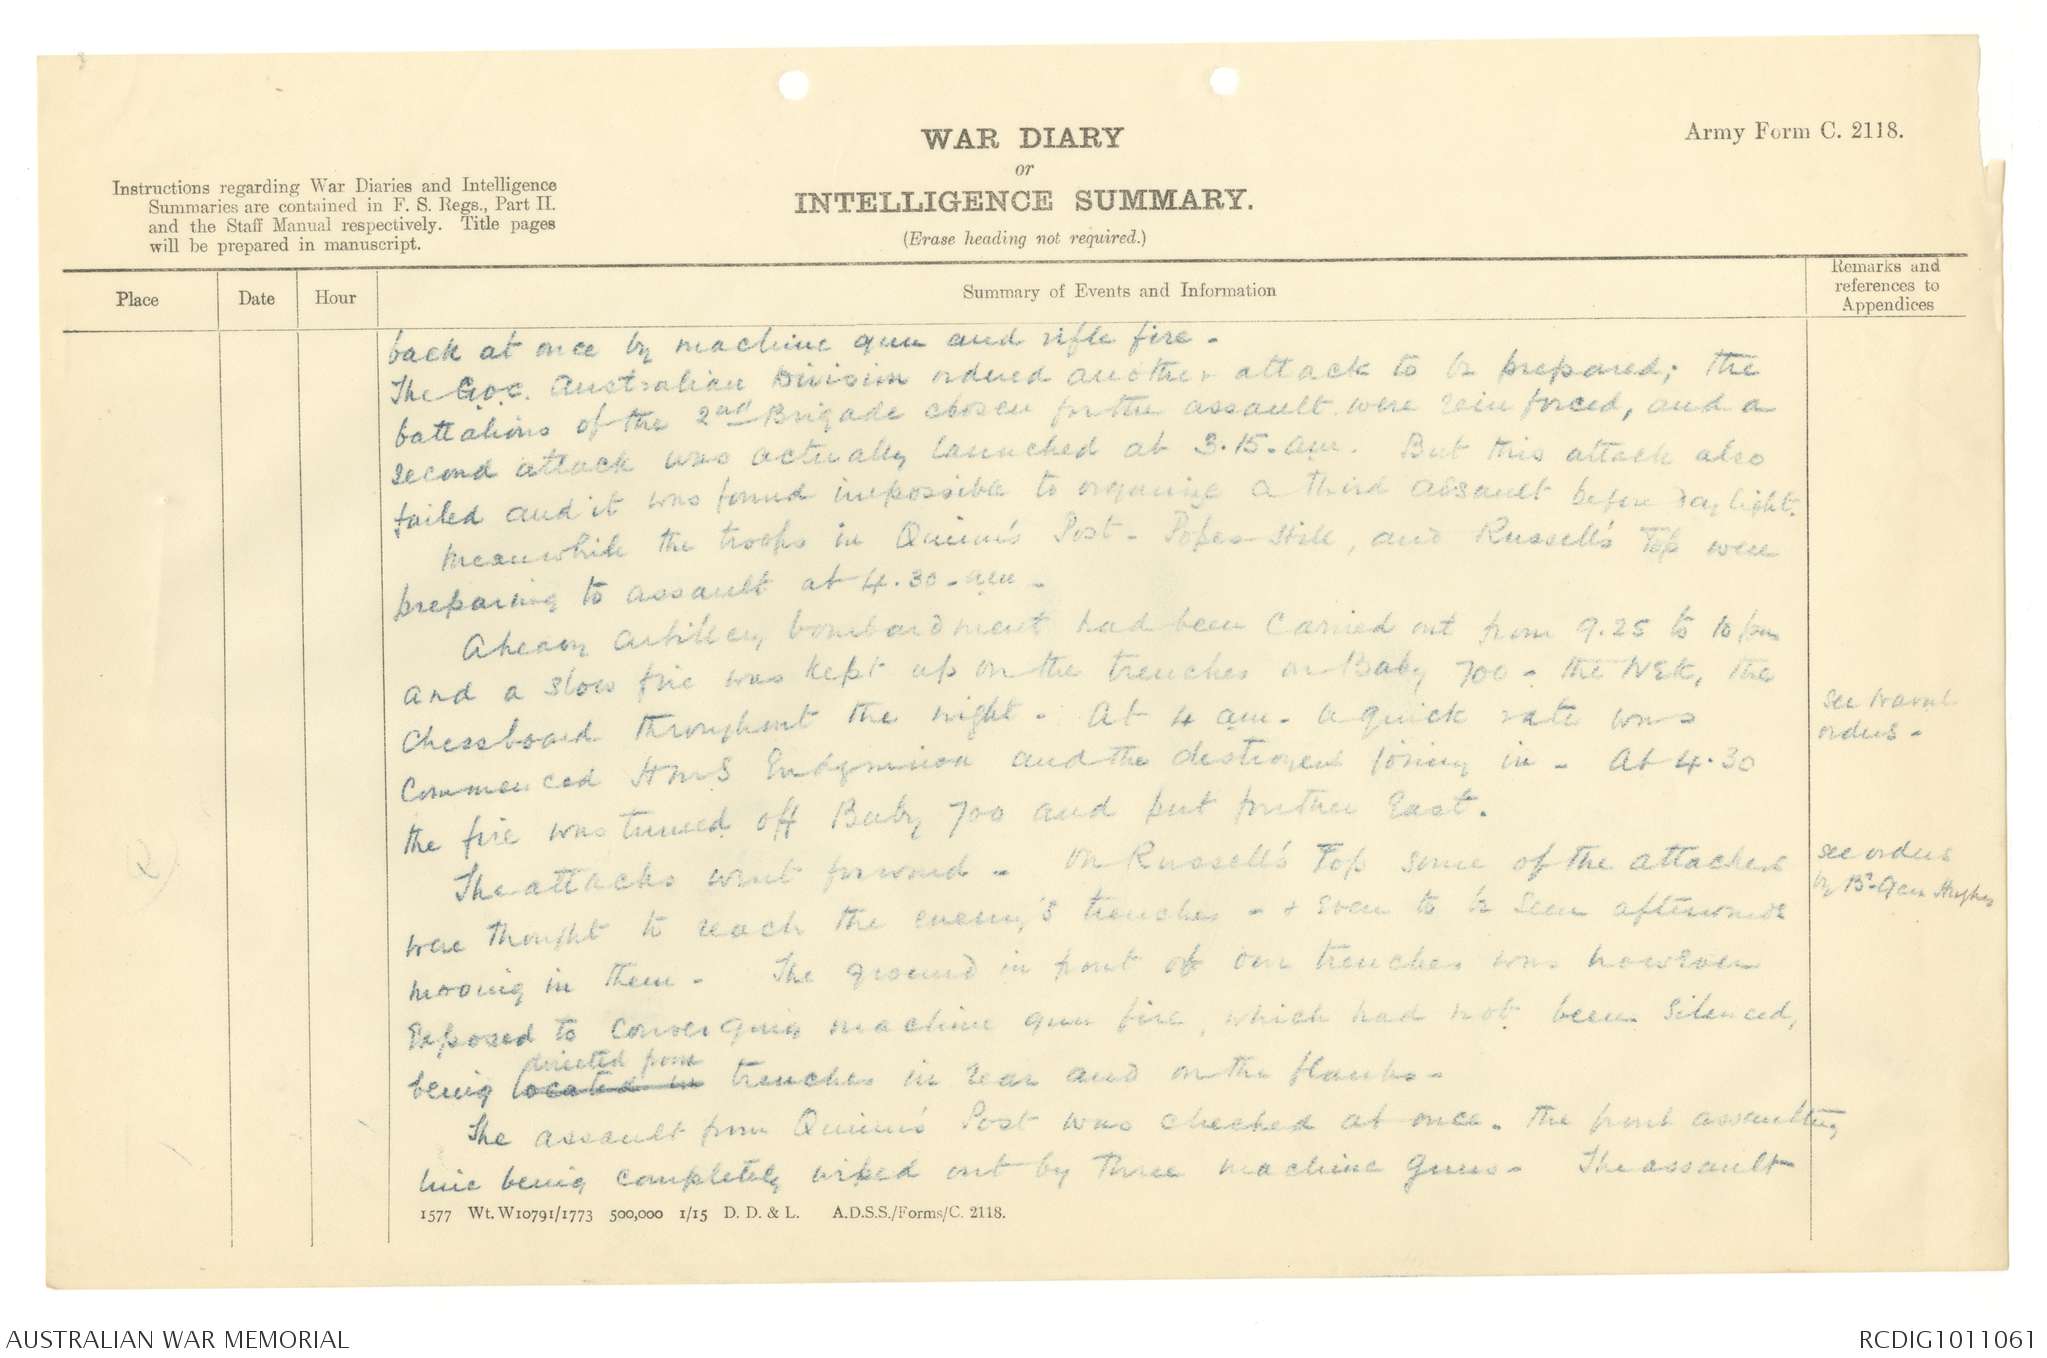 WAR DIARY
or
INTELLIGENCE SUMMARY.
(Erase heading not required.)
Army Form C. 2118.
Instructions regarding War Diaries and Intelligence
Summaries are contained in F. S. Regs., Part II.
and the Staff Manual respectively. Title pages
will be prepared in manuscript.
Place
Date
Hour
Summary of Events and Information
Remarks and
references to
Appendices
back at once by machine gun and rifle fire -
The G.O.C. Australian Division ordered another attack to be prepared; the
battalions of the 2nd Brigade chosen for the assault were reinforced, and a
second attack was actually launched at 3.15. am. But this attack also
failed and it was found impossible to organize a third assault before daylight.
Meanwhile the troops in Quinn's Post - Popes Hill, and Russell's Top were
preparing to assault at 4.30 - am -
A heavy artillery bombardment had been carried out from 9.25 to 10 pm
and a slow fire was kept up on the trenches on Baby 700 - the NEK, the
Chessboard throughout the night - At 4 am - a quick rate was
see Naval
orders -
commenced HMS Endymion and the destroyers joining in - At 4.30
the fire was turned off Baby 700 and put further East.
The attacks went forward - On Russell's Top some of the attackers
see orders
by Br-Gen Hughes
were thought to reach the enemy's trenches - & even to be seen afterwards
moving in them - The ground in front of our trenches was however
exposed to converging machine gun fire, which had not been silenced,
directed from
being located in trenches in rear and on the flanks -
The assault from Quinn's Post was checked at once - the front assaulting
line being completely wiped out by three machine guns - The assault
1577 Wt. W10791/1773 500,000 1/15 D. D. & L. A.D.S.S./Forms/C. 2118.
AUSTRALIAN WAR MEMORIAL
RCDIG1011061